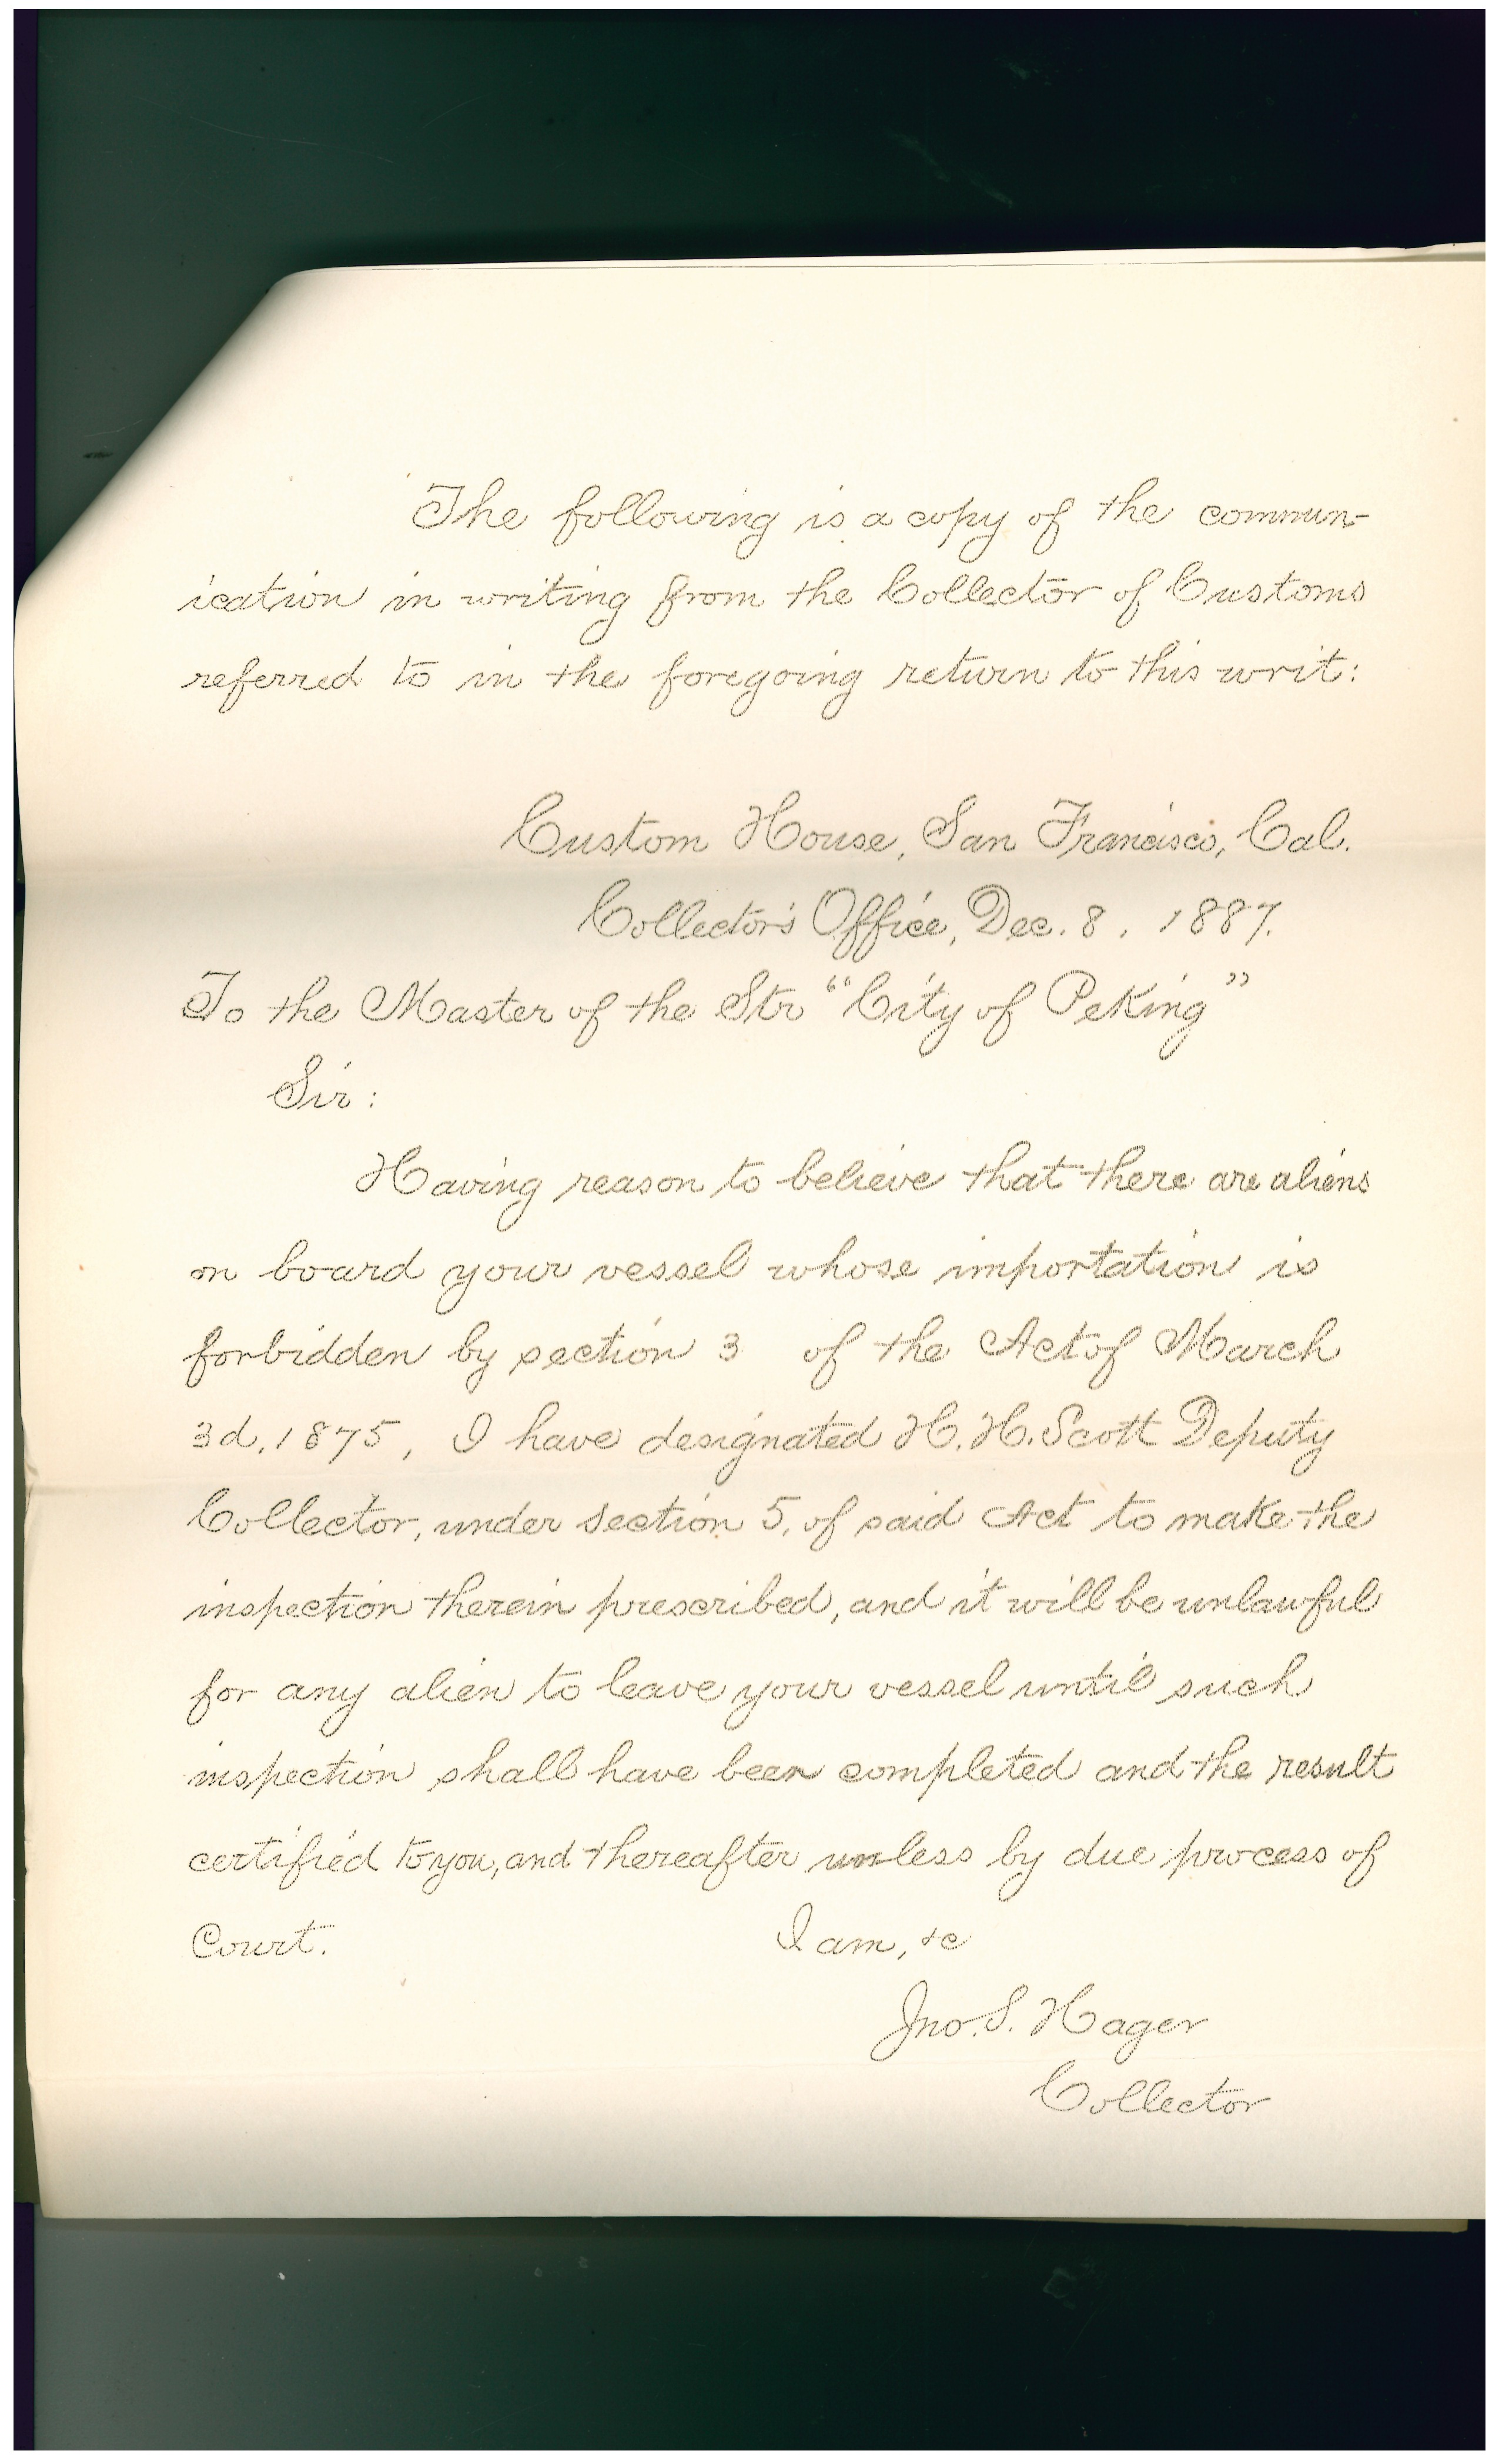 The following is a copy of the commun-
ication in writing from the Collector of Customs
referred to in the foregoing return to this writ:
Custom House, San Francisco, Cal.
Collector's Office, Dec. 8. 1887.
To the Master of the Str "City of Peking"
Sir:
Having reason to believe that there are aliens
on board your vessel whose importation is
forbidden by section 3 of the Act of March
3d, 1875, I have designated H. H. Scott Deputy
Collector, under section 5, of said Act to make the
inspection therein prescribed, and it will be unlawful
for any alien to leave your vessel until such
inspection shall have been completed and the result
certified to you, and thereafter unless by due process of
Court. I am, &c
Jno. S. Hager
Collector